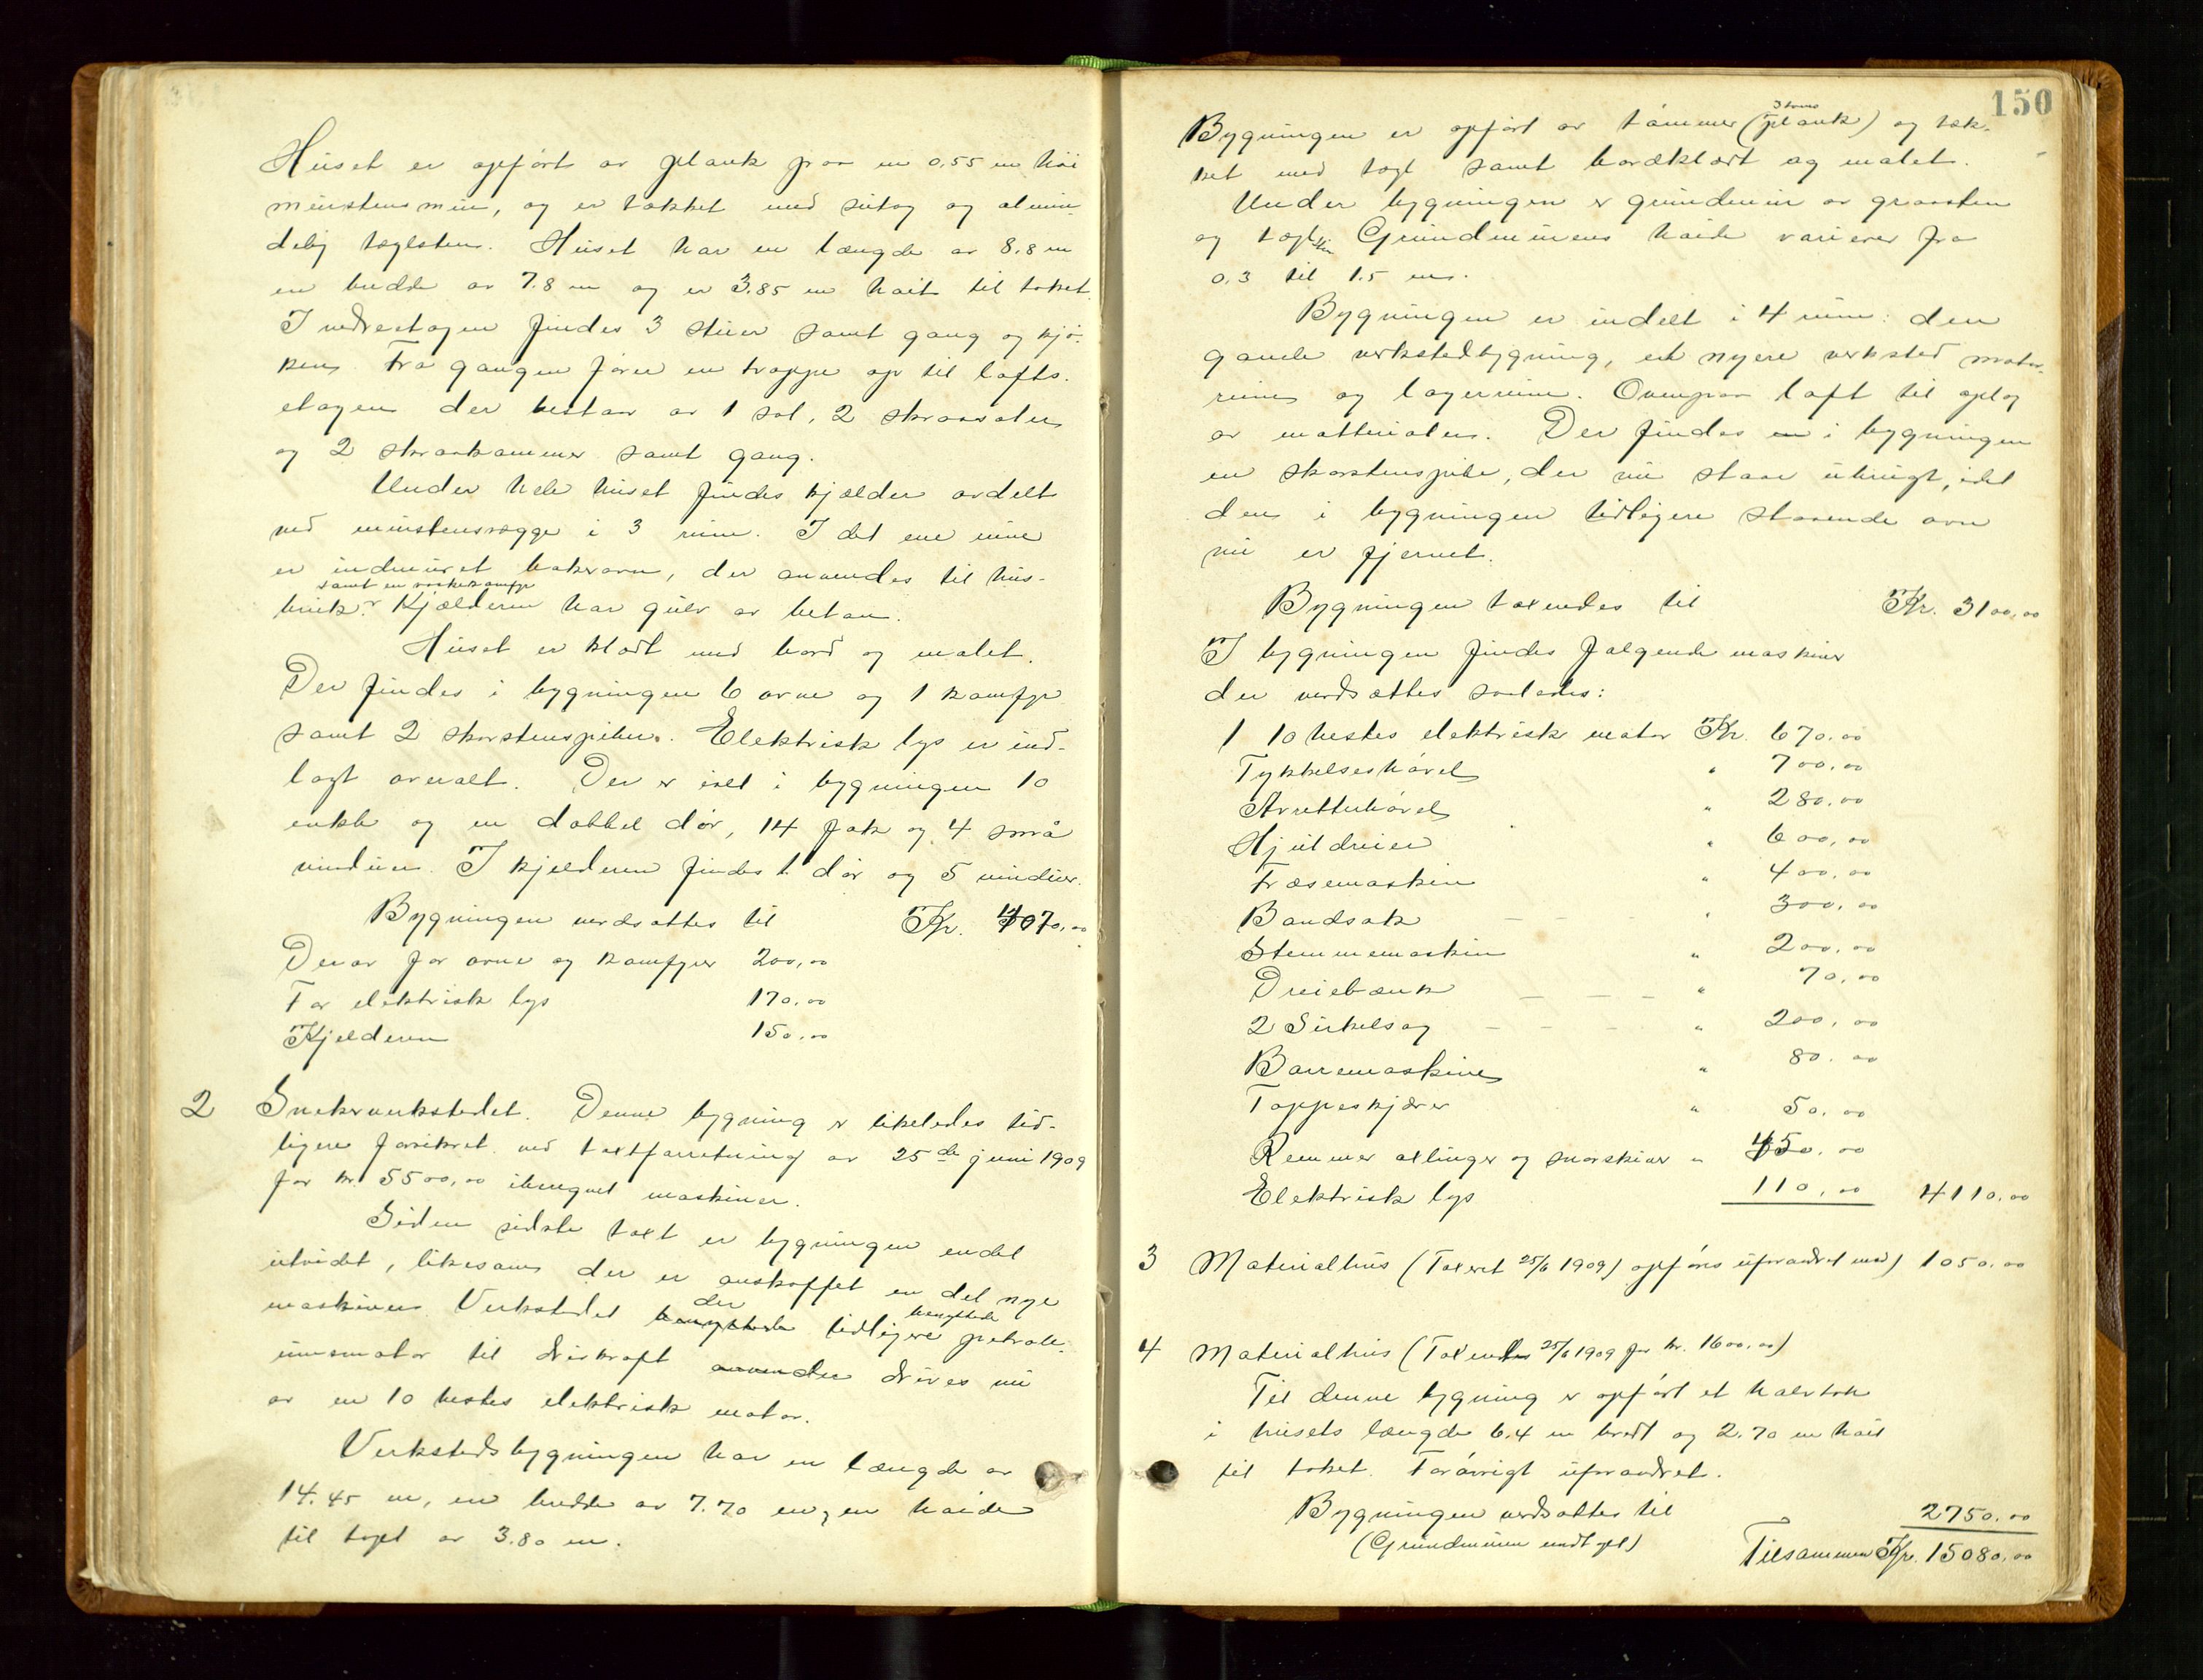 Huset er opført av plank paa en 0,55 m høi
murstensmur, og er tækket med sutag og almin-
delig taglsten. Huset har en længde av 8.8 m
en bredde av 7.8 m og er 3.85 m høit til taket.
I nedreetagen findes 3 stuer samt gang og kjø-
ken. Fra gangen fører en trappe op til lofts-
etagen der bestaar av 1 sal, 2 skraasaler
og 2 skraakammer samt gang.
Under hele huset findes kjælder avdelt
ved murstensvægge i 3 rum. I det ene rum
er indmuret bakerovn, der anvendes til hus-
samt en vaskekomfyr
bruk. Kjælderen har gulv av beton.
Huset er klædt med bord og malet.
Der findes i bygningen 6 ovne og 1 komfyr
samt 2 skorstenspiber. Elektrisk lys er ind-
lagt overalt. Der er ialt i bygningen 10
enkle og en dobbel dør, 14 fak og 4 små
vinduer. I kjelderen findes 1 dør og 5 vinduer.
Bygningen verdsættes til Kr. 4070,00
Derav for ovne og komfyrer 200,00
For elektrisk lys 170,00
Kjelderen 150,00
2 Snekerverkstedet. Denne bygning er likeledes tid-
ligere forsikret ved taxtforretning av 25de juni 1909
for kr. 5500,00 iberegnet maskiner.
Siden sidste taxt er bygningen endel
utvidet, likesom der er anskaffet en del nye
maskiner. Verkstedet benyttede der tidligere benyttede petrole-
umsmotor til drivkraft anvendte drives nu
av en 10 hestes elektrisk motor.
Verkstedsbygningen har en længde av
14.45 m, en bredde av 7.70 m, en høide
til taget av 3.80 m.
150
Bygningen er opført av tømmer (3 toms plank) og tæk-
ket med tagl samt bordklædt og malet.
Under bygningen er grundmur av graasten
og taglsten Grundmurens høide varierer fra
0.3 til 1.5 m.
Bygningen er indelt i 4 rum: den
gamle verkstedbygning, et nyere verksted motor-
rum og lagerrum. Ovenpaa loft til oplag
av matterialer. Der findes en i bygningen
en skorstenspibe, der nu staar ubrugt, idet
den i bygningen tidligere staaende ovn
nu er fjernet.
Bygningen taxeredes til Kr. 3100,00
I bygningen findes følgende maskiner
der verdsættes saaledes:
1 10 hestes elektrisk motor Kr. 670,00
Tykkelseshøvel " 700,00
Avretterhøvel " 280,00
Hjuldreier " 600,00
Fræsemaskin " 400,00
Bandsak " 300,00
Stemmemaskin " 200,00
Dreiebænk " 70,00
2 Sirkelsag " 200,00
Borremaskine " 80,00
Tappeskjærer " 50,00
Remmer axlinger og snorskiver " 450,00
Elektrisk lys 110,00 4110,00
3 Materialhus (Taxeret 25/6 1909) opføres uforandret med) 1050,00
4 Materialhus (Taxeredes 25/6 1909 for kr. 1600,00)
Til denne bygning er opført et halvtak
i husets længde 6.4 m bredt og 2.70 m høit
til taket. Forøvrigt uforandret.
Bygningen verdsættes til 2750,00
(Grundmuren undt. gel) Tilsammen Kr. 15080,00